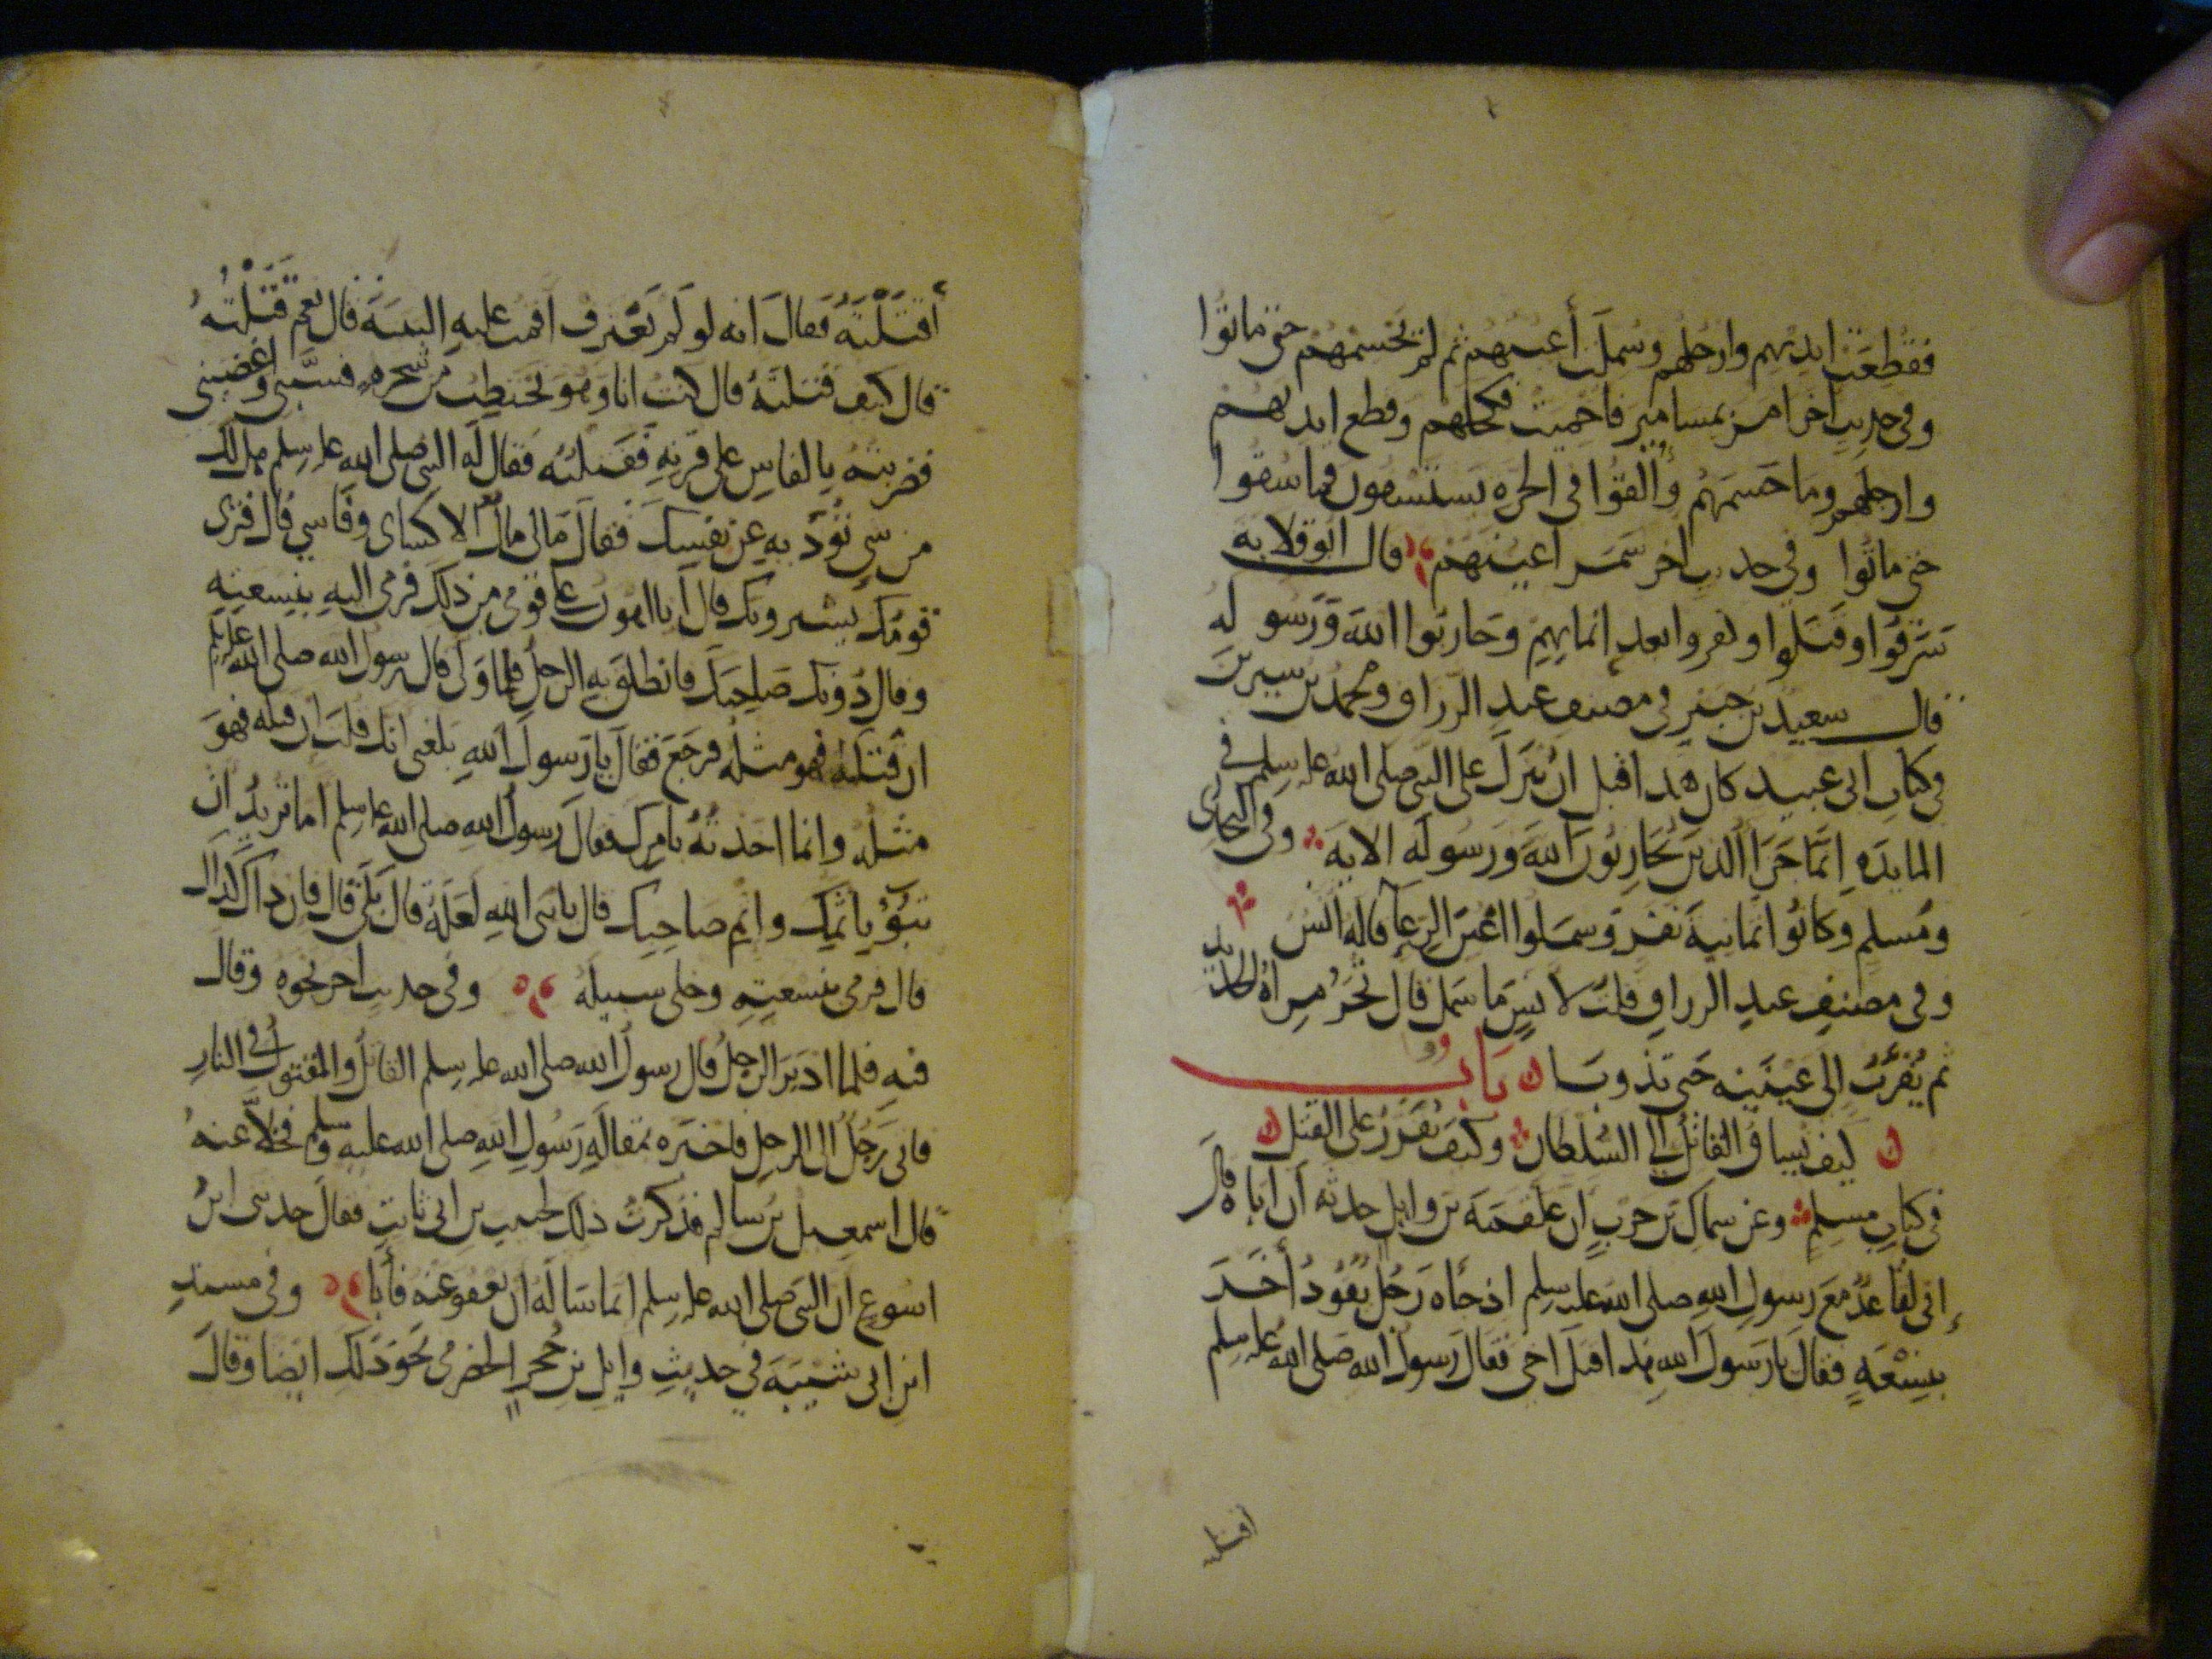 فقطعت ايديهم وارجلهم وسملت أعينهم ثم لم يحسمهم حتى ماتوا
وفي حديث اخر امر بمسامير فاحميت فكحلهم وقطع ايديهم
وارجلهم وما حسمهم وألقوا في الحره يستسقون فما سقوا
حتى ماتوا وفي حديث اخر سمر اعينهم قال ابو قلابه
سرقوا وقتلوا وكفروا بعد ايمانهم وحاربوا الله ورسوله
قال سعيد بن جبير في مصنف عبد الرزاق ومحمد بن سيرين
في كتاب ابي عبيد كان هذا قبل ان ينزل على النبي صلى الله عليه وسلم في
المايدة انما جزا الذين يحاربون الله ورسوله الايه وفي البخاري
ومسلم وكانوا ثمانية نفر وسملوا اعين الرعا قاله انس
وفي مصنف عبد الرزاق قلت لانس ما سمل قال تحد مراة الحديد
ثم يقرب الى عينيه حتى تذوبا ن باب
ن كيف يساق القاتل الى السلطان وكيف يقرر على القتل ن
في كتاب مسلم وعن سماك بن حرب ان علقمة بن وايل حدثه ان اباه قال
إني لقاعد مع رسول الله صلى الله عليه وسلم اذ جاه رجل يقود أخر
بنسعة فقال يا رسول الله هذا قتل اخي فقال رسول الله صلى الله عليه وسلم
اقتلته
أقتلته فقال انه لو لم يعترف اقمت عليه البينة قال نعم قتلته
قال كيف قتلته قال كنت انا وهو نحتطب من شجره فسبني واغضبني
فضربته بالفاس على قرنه فقتلته فقال له النبي صلى الله عليه وسلم هل لك
من شي تؤد به عن نفسك فقال مالي مال الا كساي وفاسي قال فترى
قومك يشترونك قال انا اهون على قومي من ذلك فرمى اليه بنسعته
وقال دونك صاحبك فانطلق به الرجل فلما ولى قال رسول الله صلى الله عليه وسلم
ان قتله فهو مثله فرجع فقال يا رسول الله بلغني انك قلت ان قتله فهو
مثله وانما اخذته بامرك فقال رسول الله صلى الله عليه وسلم اما تريد ان
تبؤ باثمك واثم صاحبك قال يا نبي الله لعله قال بلى قال فان ذاك كذاك
قال فرمى بنسعته وخلى سبيله وفي حديث اخر نحوه وقال
فيه فلما ادبر الرجل قال رسول الله صلى الله عليه وسلم القاتل والمقتول في النار
فاتى رجل الى الرجل فاخبره بمقالة رسول الله صلى الله عليه وسلم فخلا عنه
قال اسمعيل بن سالم فذكرت ذلك لحبيب بن ابي ثابت فقال حدثني ابن
اسوع ان النبي صلى الله عليه وسلم انما ساله ان يعفو عنه فأبا وفي مسند
ابن ابي شيبة في حديث وايل بن حجر الحضرمي نحو ذلك ايضا وقال